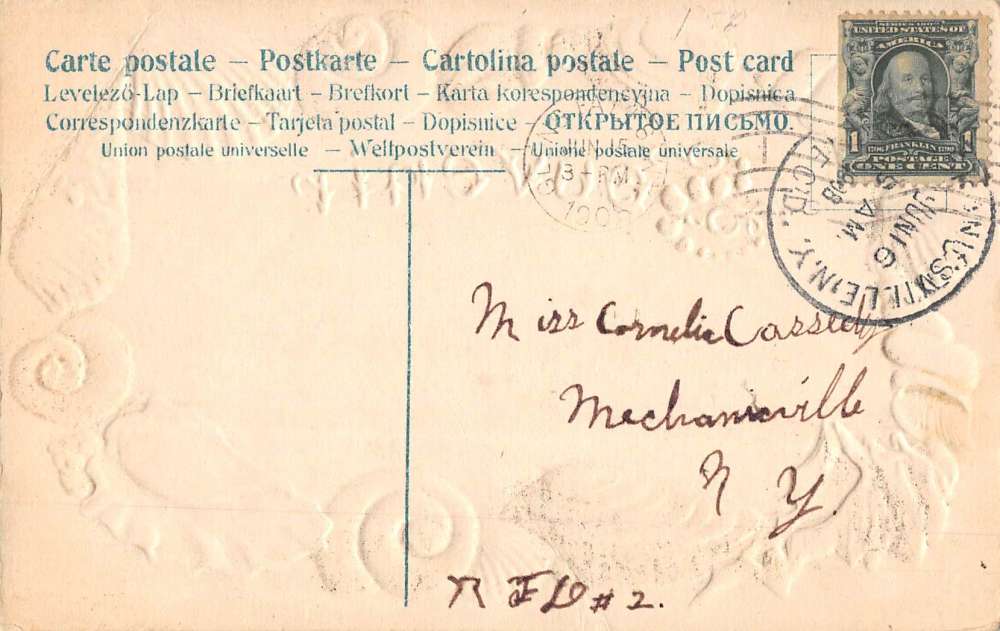 Carte postale – Postkarte – Cartolina postale – Post card
Levelező-Lap – Briefkaart – Brefkort – Karta korespondencyjna – Dopisnica
Correspondenzkarte – Tarjeta postal – Dopisnice – ОТКРЫТОЕ ПИСЬМО.
Union postale universelle – Weltpostverein – Unione postale universale
SERIES 1902
UNITED STATES OF
AMERICA
1 1706 FRANKLIN 1790 1
POSTAGE
ONE CENT
JUN 15
3 - PM
REC'D.
JUN 16
AM
1908
Miss Cornelia Cassedy
Mechanicville
N Y.
R F D # 2.